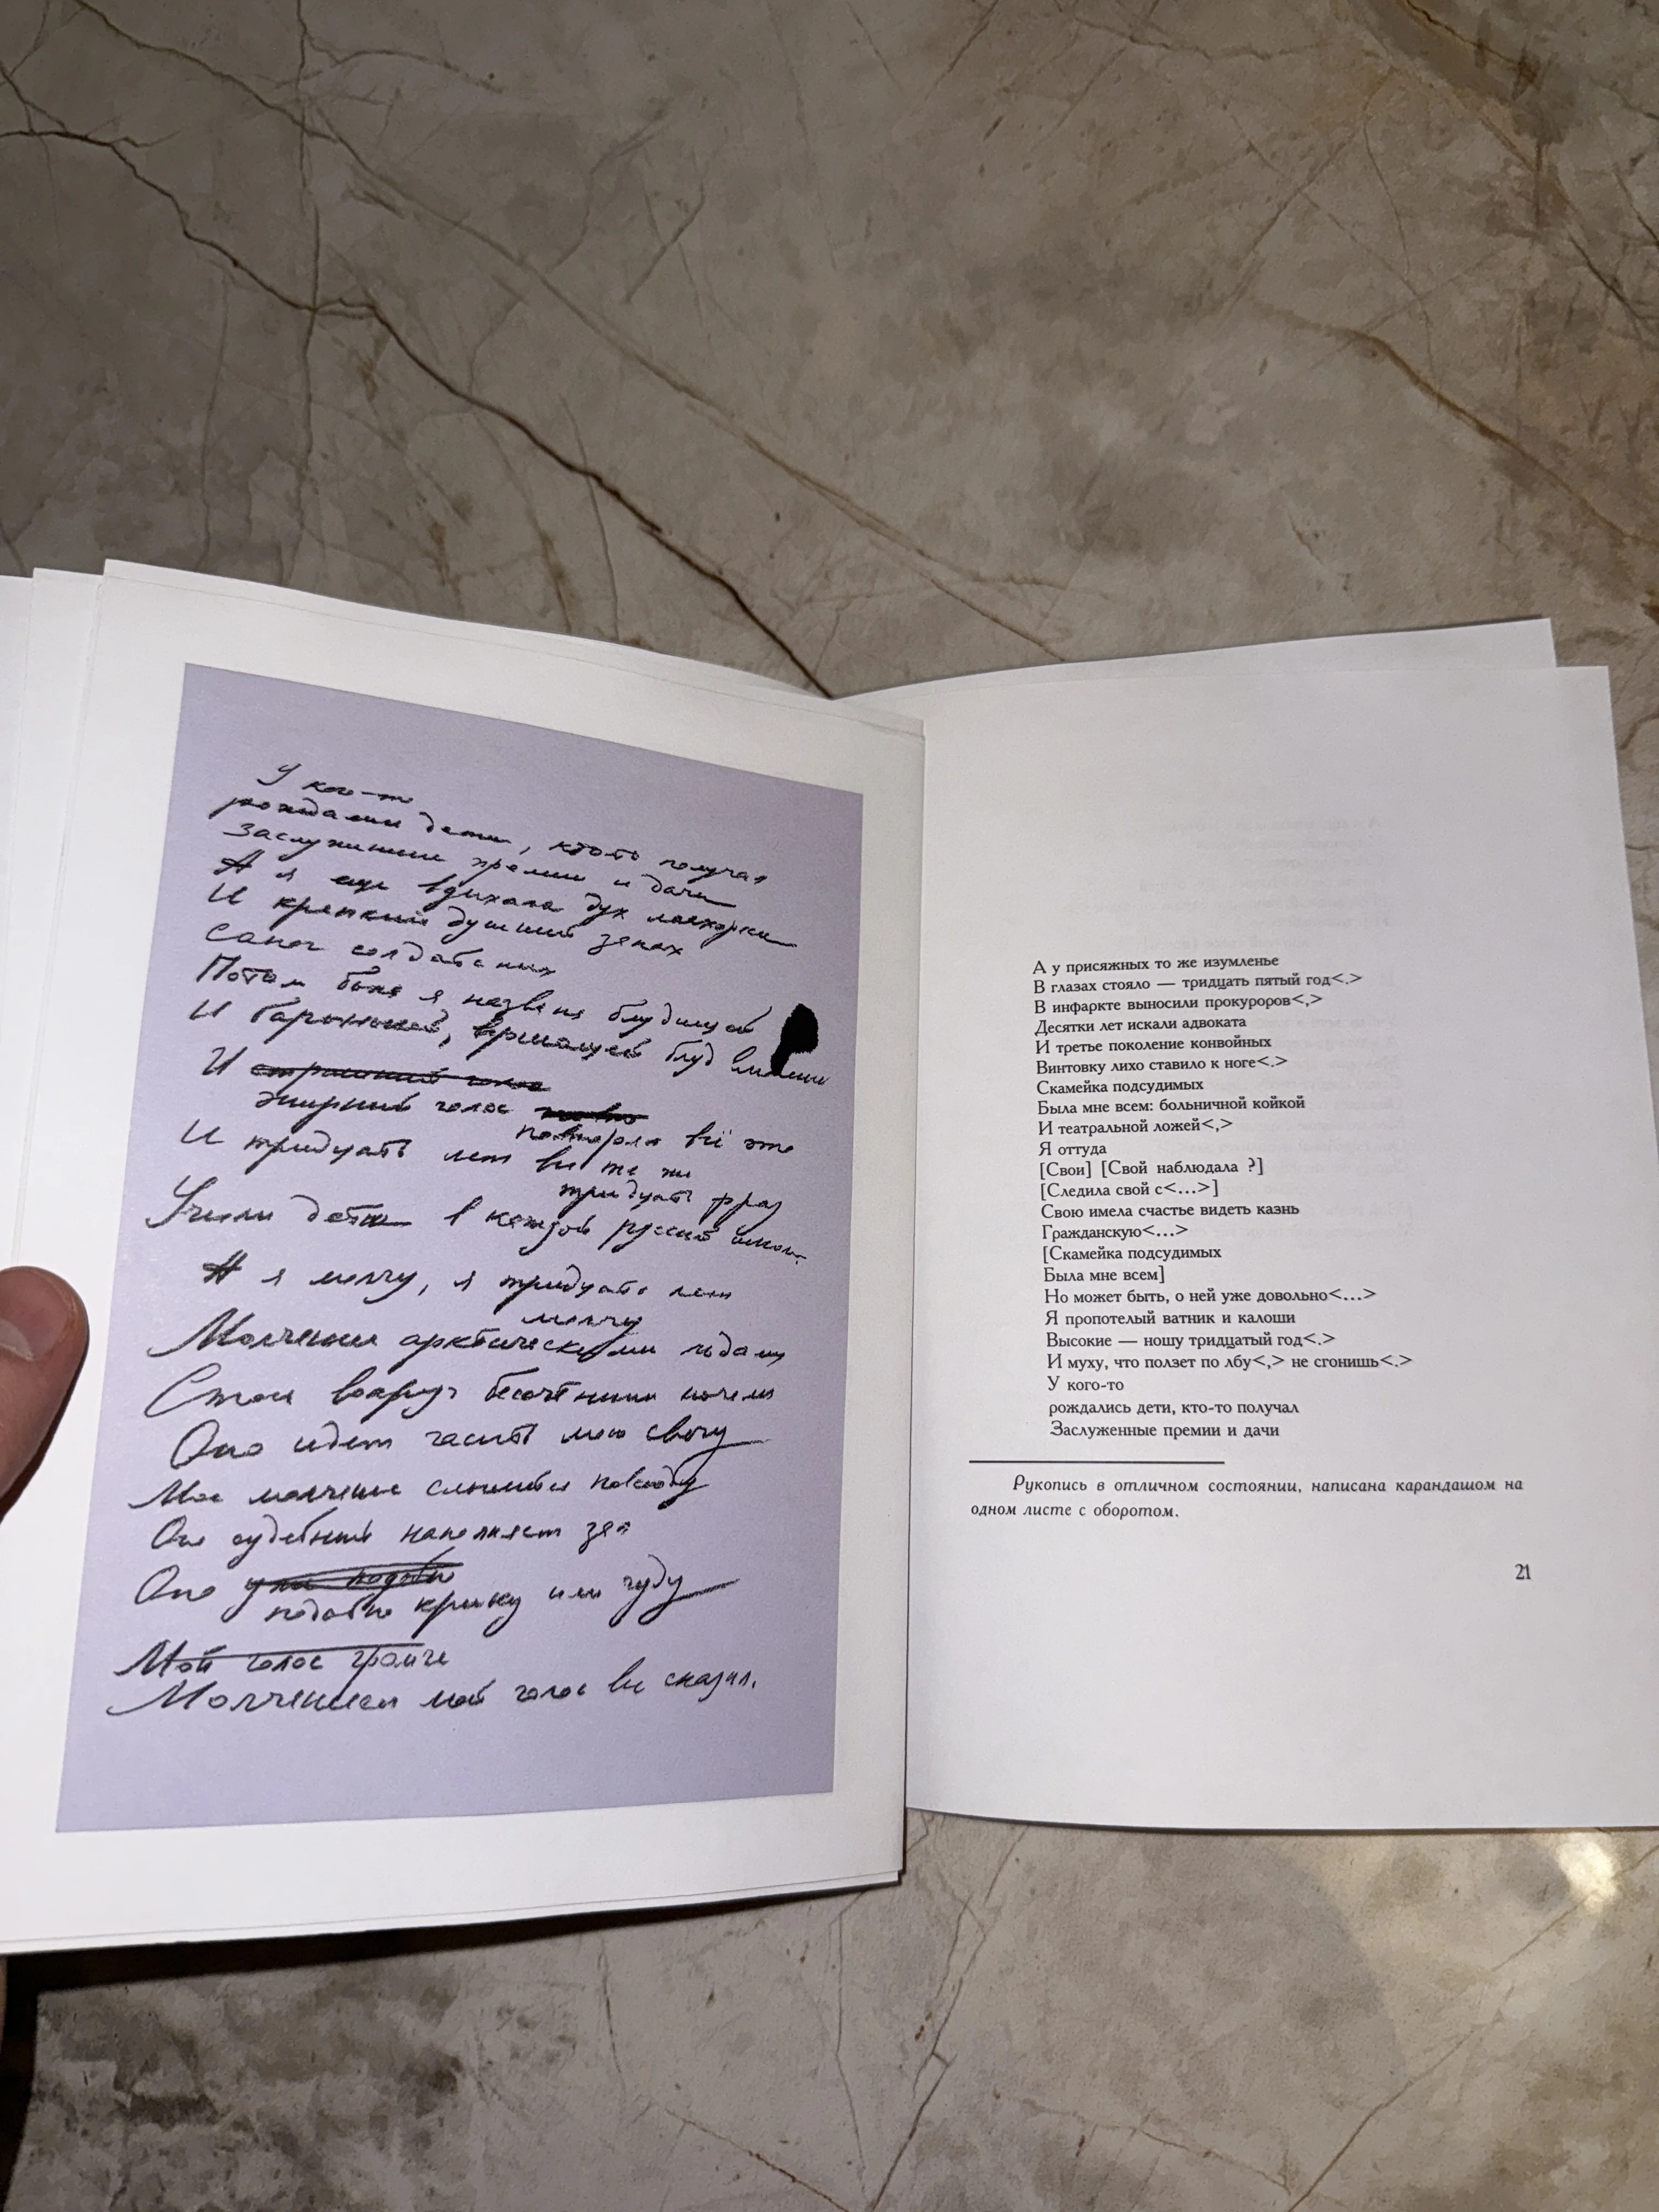 У кого-то
рождались дети, кто-то получал
Заслуженные премии и дачи
А я еще вдыхала дух махорки
И крепкий душный запах
Сапог солдатских
Потом была я названа блудницей
И барынькой, бранящей блуд
И страшный голос
Эфирный голос
повторял всё это
И тридцать лет все те же
тридцать фраз
Учили дети в каждой русской школе
А я молчу, я тридцать лет
молчу
Молчание арктическими льдами
Стоит вокруг бессчетными ночами
Оно идет гасить мою свечу
Мое молчание слышится повсюду
Оно судебный наполняет зал
Оно подобно
подобно крику или чуду
Мой голос громче
Молчанием мой голос все сказал.
А у присяжных то же изумленье
В глазах стояло — тридцать пятый год<.>
В инфаркте выносили прокуроров<,>
Десятки лет искали адвоката
И третье поколение конвойных
Винтовку лихо ставило к ноге<.>
Скамейка подсудимых
Была мне всем: больничной койкой
И театральной ложей<,>
Я оттуда
[Свои] [Свой наблюдала ?]
[Следила свой с<...>]
Свою имела счастье видеть казнь
Гражданскую<...>
[Скамейка подсудимых
Была мне всем]
Но может быть, о ней уже довольно<...>
Я пропотелый ватник и калоши
Высокие — ношу тридцатый год<.>
И муху, что ползет по лбу<,> не сгонишь<.>
У кого-то
рождались дети, кто-то получал
Заслуженные премии и дачи
Рукопись в отличном состоянии, написана карандашом на
одном листе с оборотом.
21